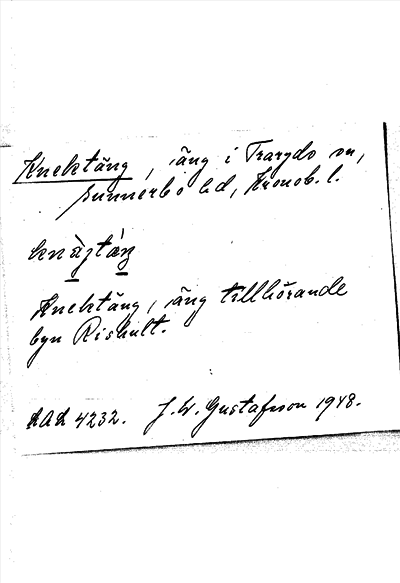 Knektäng, äng i Traryds sn,
Sunnerbo hd, Kronob. l.
Knektäng, äng tillhörande
byn Rishult.
4232. J. W. Gustafsson 1948.